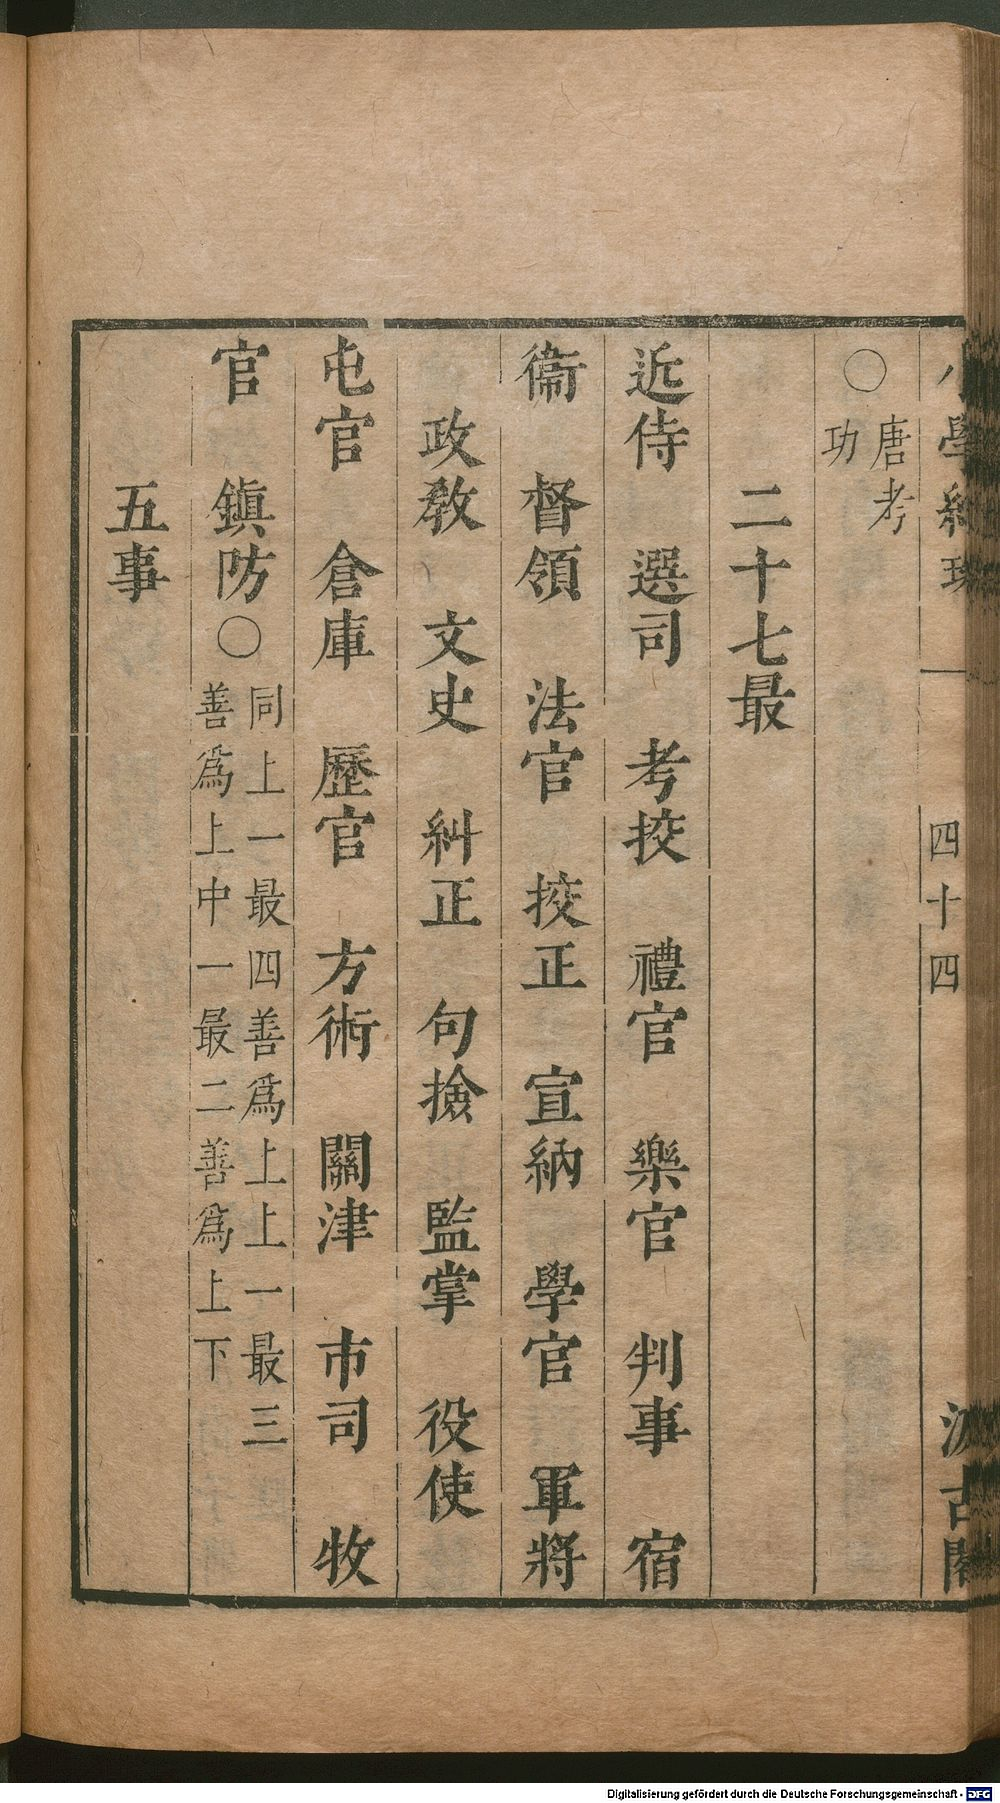 小學紺珠 四十四 汲古閣
○唐考
功
二十七最
近侍 選司 考挍 禮官 樂官 判事 宿
衞 督領 法官 挍正 宣納 學官 軍將
政教 文史 糾正 句撿 監掌 役使
屯官 倉庫 歷官 方術 關津 市司 牧
官 鎭防○同上一最四善爲上上一最三
善爲上中一最二善爲上下
五事
Digitalisierung gefördert durch die Deutsche Forschungsgemeinschaft - DFG